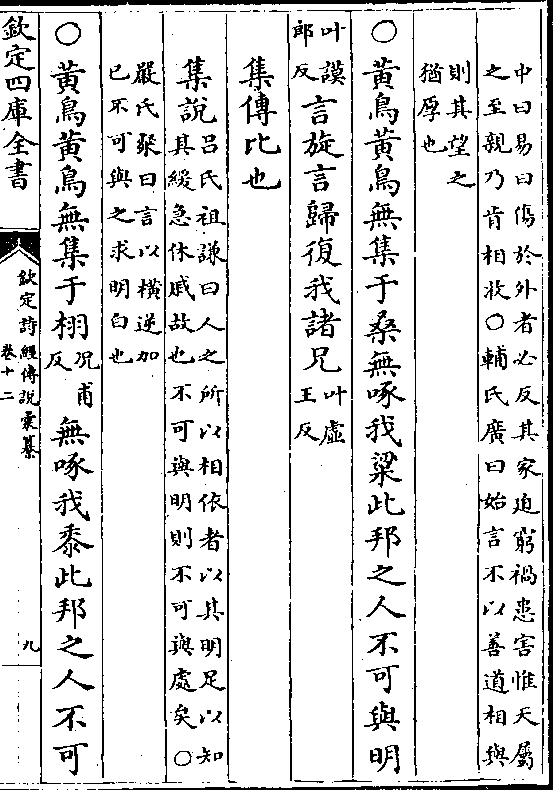 中曰易曰傷於外者必反其家迫窮禍患害惟天屬
之至親乃肯相收○輔氏廣曰始言不以善道相與
則其望之
猶厚也
○黃鳥黃鳥無集于桑無啄我粱此邦之人不可與明
叶謨
郎反
言旋言歸復我諸兄
叶虛
王反
集傳比也
集說
呂氏祖謙曰人之所以相依者以其明足以知
其緩急休戚故也不可與明則不可與處矣○
嚴氏粲曰言以橫逆加
已不可與之求明白也
○黃鳥黃鳥無集于栩
况甫
反
無啄我黍此邦之人不可
欽定四庫全書
欽定詩經傳說彙纂
卷十二
九